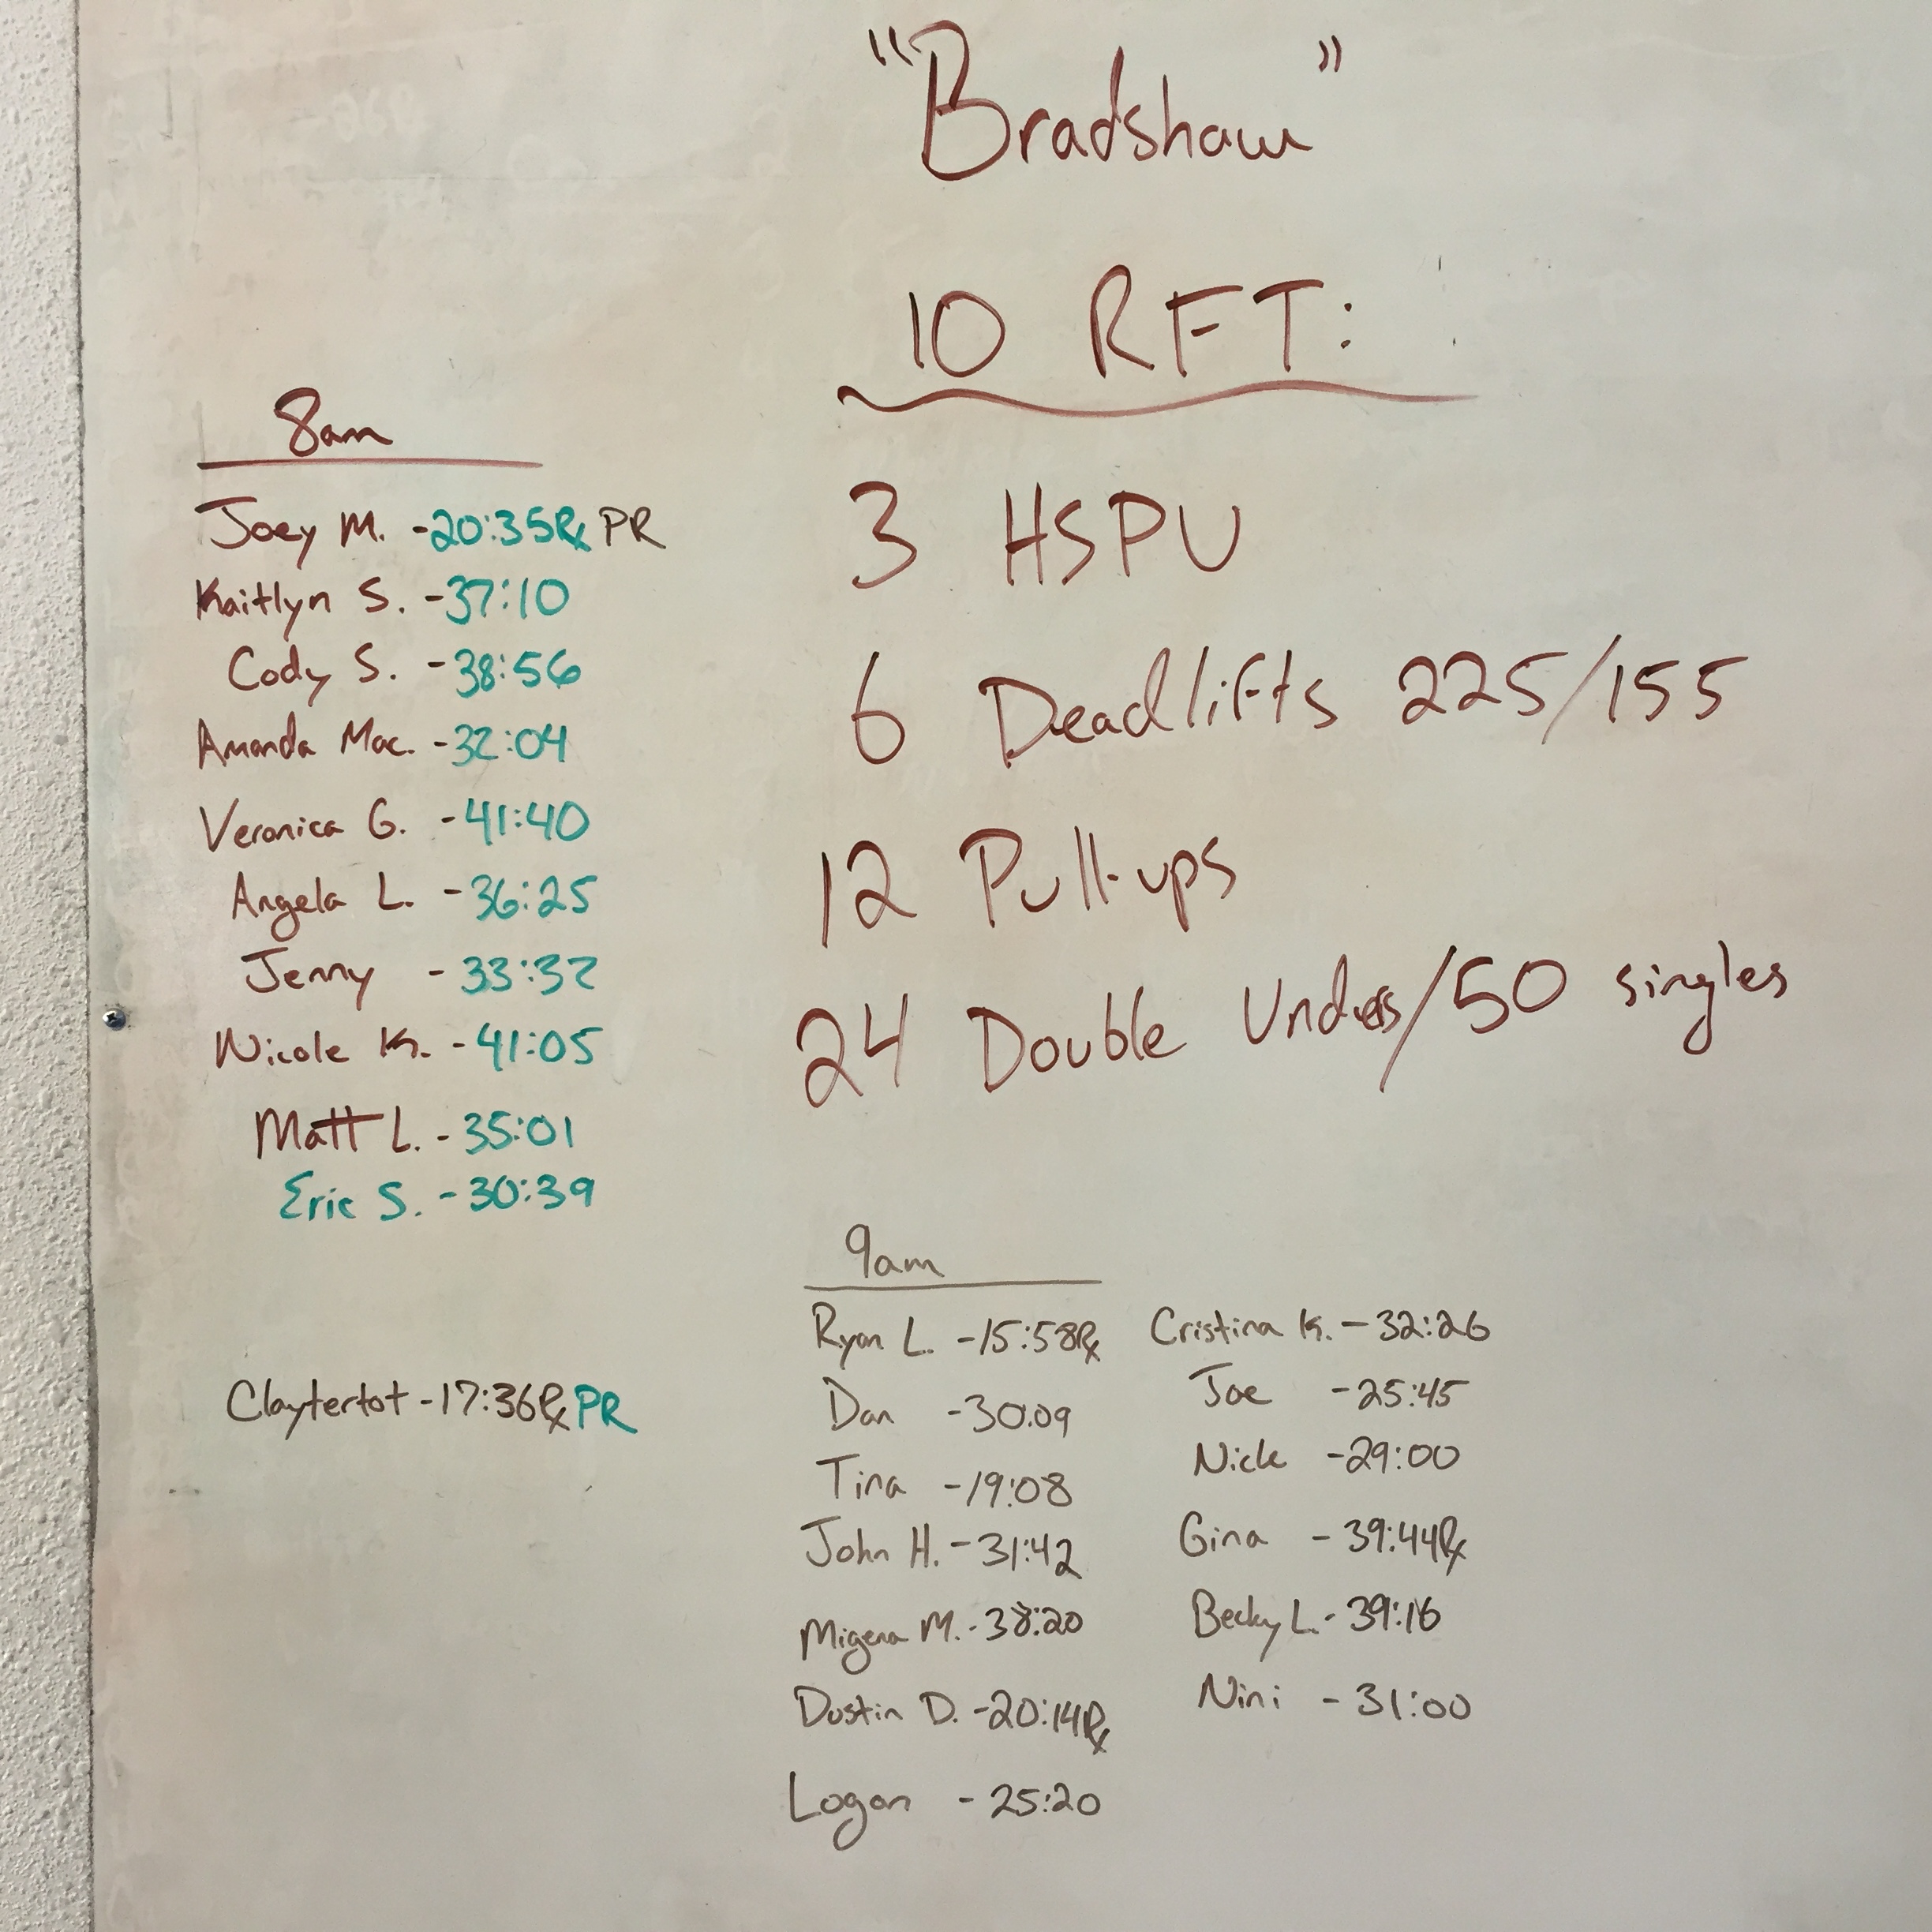 "Bradshaw"
10 RFT:
3 HSPU
6 Deadlifts 225/155
12 Pull-ups
24 Double Unders/50 singles
8am
Joey M. -20:35Rx PR
Kaitlyn S. -37:10
Cody S. -38:56
Amanda Mac. -32:04
Veronica G. -41:40
Angela L. -36:25
Jenny -33:32
Nicole K. -41:05
Matt L. -35:01
Eric S. -30:39
Claytertot -17:36Rx PR
9am
Ryan L. -15:58Rx
Dan -30:09
Tina -19:08
John H. -31:42
Migena M. -38:20
Dustin D. -20:14Rx
Logan -25:20
Cristina K. -32:26
Joe -25:45
Nick -29:00
Gina -39:44Rx
Becky L. -39:16
Nini -31:00